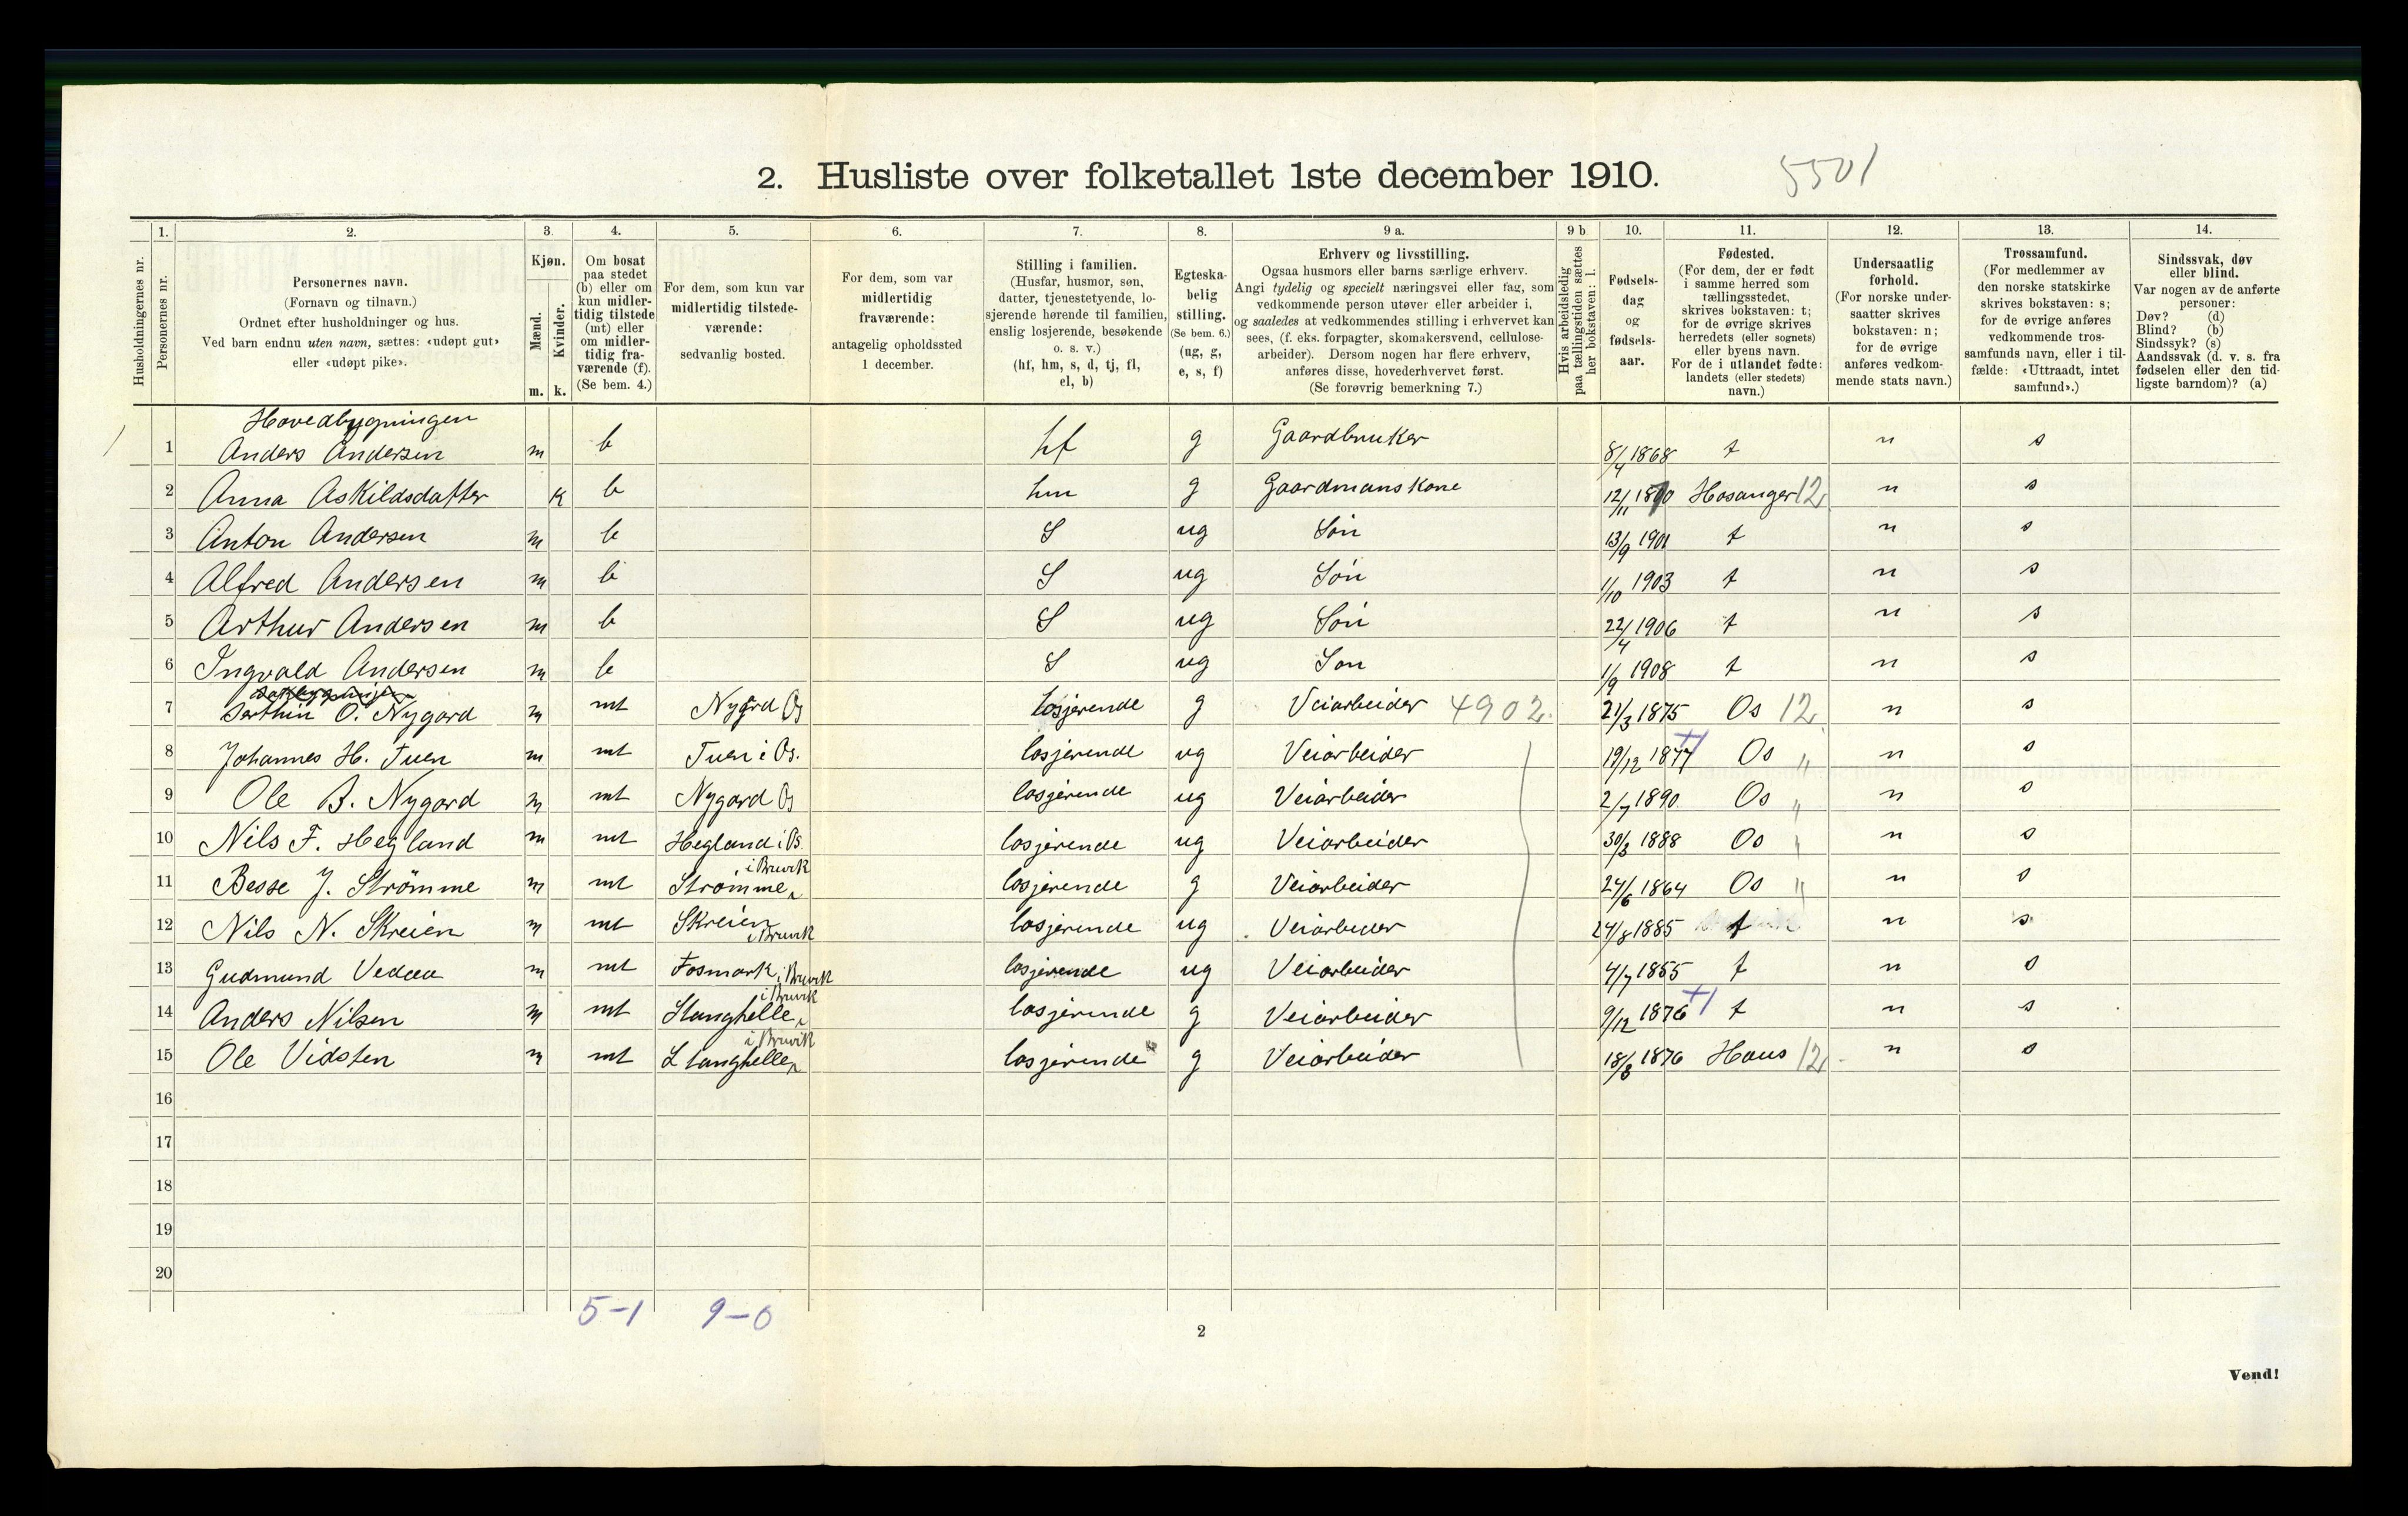 2. Husliste over folketallet 1ste december 1910. 5501
1. 2. 3. 4. 5. 6. 7. 8. 9 a. 9 b 10. 11. 12. 13. 14.
Husholdningernes nr.
Personernes nr.
Personernes navn.
(Fornavn og tilnavn.)
Ordnet efter husholdninger og hus.
Ved barn endnu uten navn, sættes: «udøpt gut»
eller «udøpt pike».
Kjøn.
Mænd.
Kvinder.
m. k.
Om bosat
paa stedet
(b) eller om
kun midler-
tidig tilstede
(mt) eller
om midler-
tidig fra-
værende (f).
(Se bem. 4.)
For dem, som kun var
midlertidig tilstede-
værende:
sedvanlig bosted.
For dem, som var
midlertidig
fraværende:
antagelig opholdssted
1 december.
Stilling i familien.
(Husfar, husmor, søn,
datter, tjenestetyende, lo-
sjerende hørende til familien,
enslig losjerende, besøkende
o. s. v.)
(hf, hm, s, d, tj, fl,
el, b)
Egteska-
belig
stilling.
(Se bem. 6.)
(ug, g,
e, s, f)
Erhverv og livsstilling.
Ogsaa husmors eller barns særlige erhverv.
Angi tydelig og specielt næringsvei eller fag, som
vedkommende person utøver eller arbeider i,
og saaledes at vedkommendes stilling i erhvervet kan
sees, (f. eks. forpagter, skomakersvend, cellulose-
arbeider). Dersom nogen har flere erhverv,
anføres disse, hovederhvervet først.
(Se forøvrig bemerkning 7.)
Hvis arbeidsledig
paa tællingstiden sættes
her bokstaven: l.
Fødsels-
dag
og
fødsels-
aar.
Fødested.
(For dem, der er født
i samme herred som
tællingsstedet,
skrives bokstaven: t;
for de øvrige skrives
herredets (eller sognets)
eller byens navn.
For de i utlandet fødte:
landets (eller stedets)
navn.)
Undersaatlig
forhold.
(For norske under-
saatter skrives
bokstaven: n;
for de øvrige
anføres vedkom-
mende stats navn.)
Trossamfund.
(For medlemmer av
den norske statskirke
skrives bokstaven: s;
for de øvrige anføres
vedkommende tros-
samfunds navn, eller i til-
fælde: «Uttraadt, intet
samfund».)
Sindssvak, døv
eller blind.
Var nogen av de anførte
personer:
Døv? (d)
Blind? (b)
Sindssyk? (s)
Aandssvak (d. v. s. fra
fødselen eller den tid-
ligste barndom)? (a)
Hovedbygningen
1 Anders Andersen m b hf g Gaardbruker 8/4 1868 t n s
2 Anna Askildsdatter k b hm g Gaardmanskone 12/11 Hosanger 12 n s
3 Anton Andersen m b S ug Søn 13/9 1901 t n s
4 Alfred Andersen m b S ug Søn 1/10 1903 t n s
5 Arthur Andersen m b S ug Søn 22/4 1906 t n s
6 Ingvald Andersen m b S ug Søn 1/9 1908 t n s
7 O. Nygard m mt Nygård Os losjerende g Veiarbeider 4902. 21/3 1875 Os 12 n s
8 Johannes H. Tuen m mt Tuen i Os. losjerende ug Veiarbeider 19/12 1877 Os " n s
9 Ole B. Nygard m mt Nygard Os losjerende ug Veiarbeider 2/7 1890 Os " n s
10 Nils F. Hegland m mt Hegland i Os. losjerende ug Veiarbeider 30/3 1888 Os " n s
11 Besse J. Strömme m mt Strømme i Bruvik losjerende g Veiarbeider 24/6 1864 Os " n s
12 Nils N. Skreien m mt Skreien i Bruvik losjerende ug Veiarbeider 24/8 1885 t n s
13 Gudmund Vedaa m mt Fosmark i Bruvik losjerende ug Veiarbeider 4/7 1855 t n s
14 Anders Nilsen m mt Stanghelle i Bruvik losjerende g Veiarbeider 9/12 1876 t n s
15 Ole Vidsten m mt Stanghelle i Bruvik losjerende g Veiarbeider 18/8 1876 Haus 12 n s
16
17
18
19
20
5-1 9-0
2
Vend!